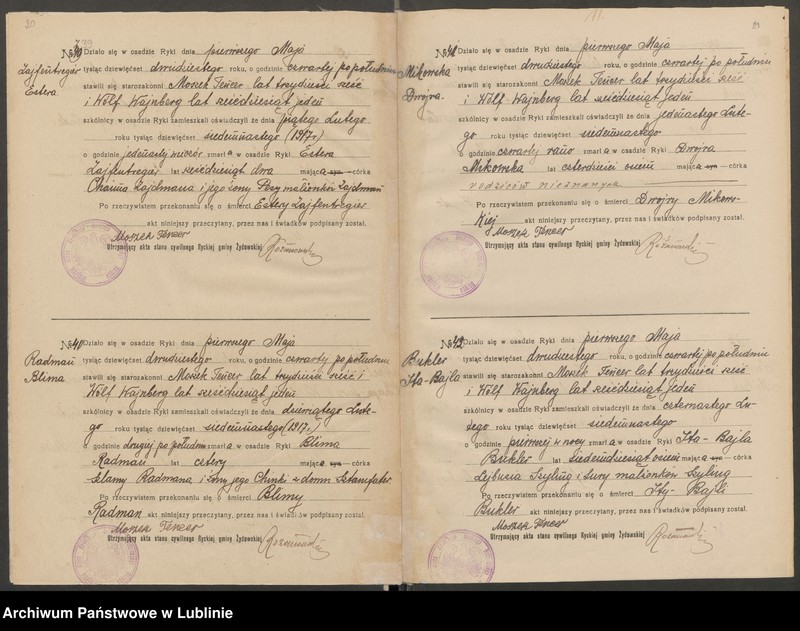 20
№ 40 Działo się w osadzie Ryki dnia pierwszego Maja
Zajfentregier
Estera
tysiąc dziewięćset dwudziestego roku, o godzinie czwartej po południu
stawili się starozakonni Mosek Tencer lat trzydzieści sześć
i Wólf Wajnberg lat sześćdziesiąt jeden
szkólnicy w osadzie Ryki zamieszkali oświadczyli że dnia piątego Lutego
roku tysiąc dziewięćset siedemnastego (1917 r)
o godzinie jedenastej wieczór zmarła w osadzie Ryki Estera
Zajfentregier lat sześćdziesiąt dwa mająca syn — córka
Chaima Zajdmana i jego żony Pesy małżonków Zajdman
Po rzeczywistem przekonaniu się o śmierci Estery Zajfentregier
akt niniejszy przeczytany, przez nas i świadków podpisany został.
Moszek Tencer
Utrzymujący akta stanu cywilnego Ryckiej gminy Żydowskiej
№ 41 Działo się w osadzie Ryki dnia pierwszego Maja
Radman
Blima
tysiąc dziewięćset dwudziestego roku, o godzinie czwartej po południu
stawili się starozakonni Mosek Tencer lat trzydzieści sześć i
Wólf Wajnberg lat sześćdziesiąt jeden
szkólnicy w osadzie Ryki zamieszkali oświadczyli że dnia dziewiątego Lute-
go roku tysiąc dziewięćset siedemnastego (1917 r.)
o godzinie drugiej po południu zmarła w osadzie Ryki Blima
Radman lat cztery mająca syn — córka
Szlamy Radmana i żony jego Chinki z domu Sztamfater
Po rzeczywistem przekonaniu się o śmierci Blimy
Radman akt niniejszy przeczytany, przez nas i świadków podpisany został.
Moszek Tencer
Utrzymujący akta stanu cywilnego Ryckiej gminy Żydowskiej
№ 42 Działo się w osadzie Ryki dnia pierwszego Maja
Mikowska
Dwojra
tysiąc dziewięćset dwudziestego roku, o godzinie czwartej po południu
stawili się starozakonni Mosek Tencer lat trzydzieści sześć
i Wólf Wajnberg lat sześćdziesiąt jeden
szkólnicy w osadzie Ryki zamieszkali oświadczyli że dnia jedenastego Lute-
go roku tysiąc dziewięćset siedemnastego
o godzinie czwartej rano zmarła w osadzie Ryki Dwojra
Mikowska lat czterdzieści osiem mająca syn — córka
rodziców nieznanych
Po rzeczywistem przekonaniu się o śmierci Dwojry Mikow-
skiej akt niniejszy przeczytany, przez nas i świadków podpisany został.
Moszek Tencer
Utrzymujący akta stanu cywilnego Ryckiej gminy Żydowskiej
№ 43 Działo się w osadzie Ryki dnia pierwszego Maja
Bukler
Ita-Bajla
tysiąc dziewięćset dwudziestego roku, o godzinie czwartej po południu
stawili się starozakonni Mosek Tencer lat trzydzieści sześć
i Wólf Wajnberg lat sześćdziesiąt jeden
szkólnicy w osadzie Ryki zamieszkali oświadczyli że dnia czternastego Lu-
tego roku tysiąc dziewięćset siedemnastego
o godzinie pierwszej w nocy zmarła w osadzie Ryki Ita-Bajla
Bukler lat siedemdziesiąt osiem mająca syn — córka
Lejbusia Szyling i Sury małżonków Szyling
Po rzeczywistem przekonaniu się o śmierci Ity-Bajli
Bukler akt niniejszy przeczytany, przez nas i świadków podpisany został.
Moszek Tencer
Utrzymujący akta stanu cywilnego Ryckiej gminy Żydowskiej
Archiwum Państwowe w Lublinie